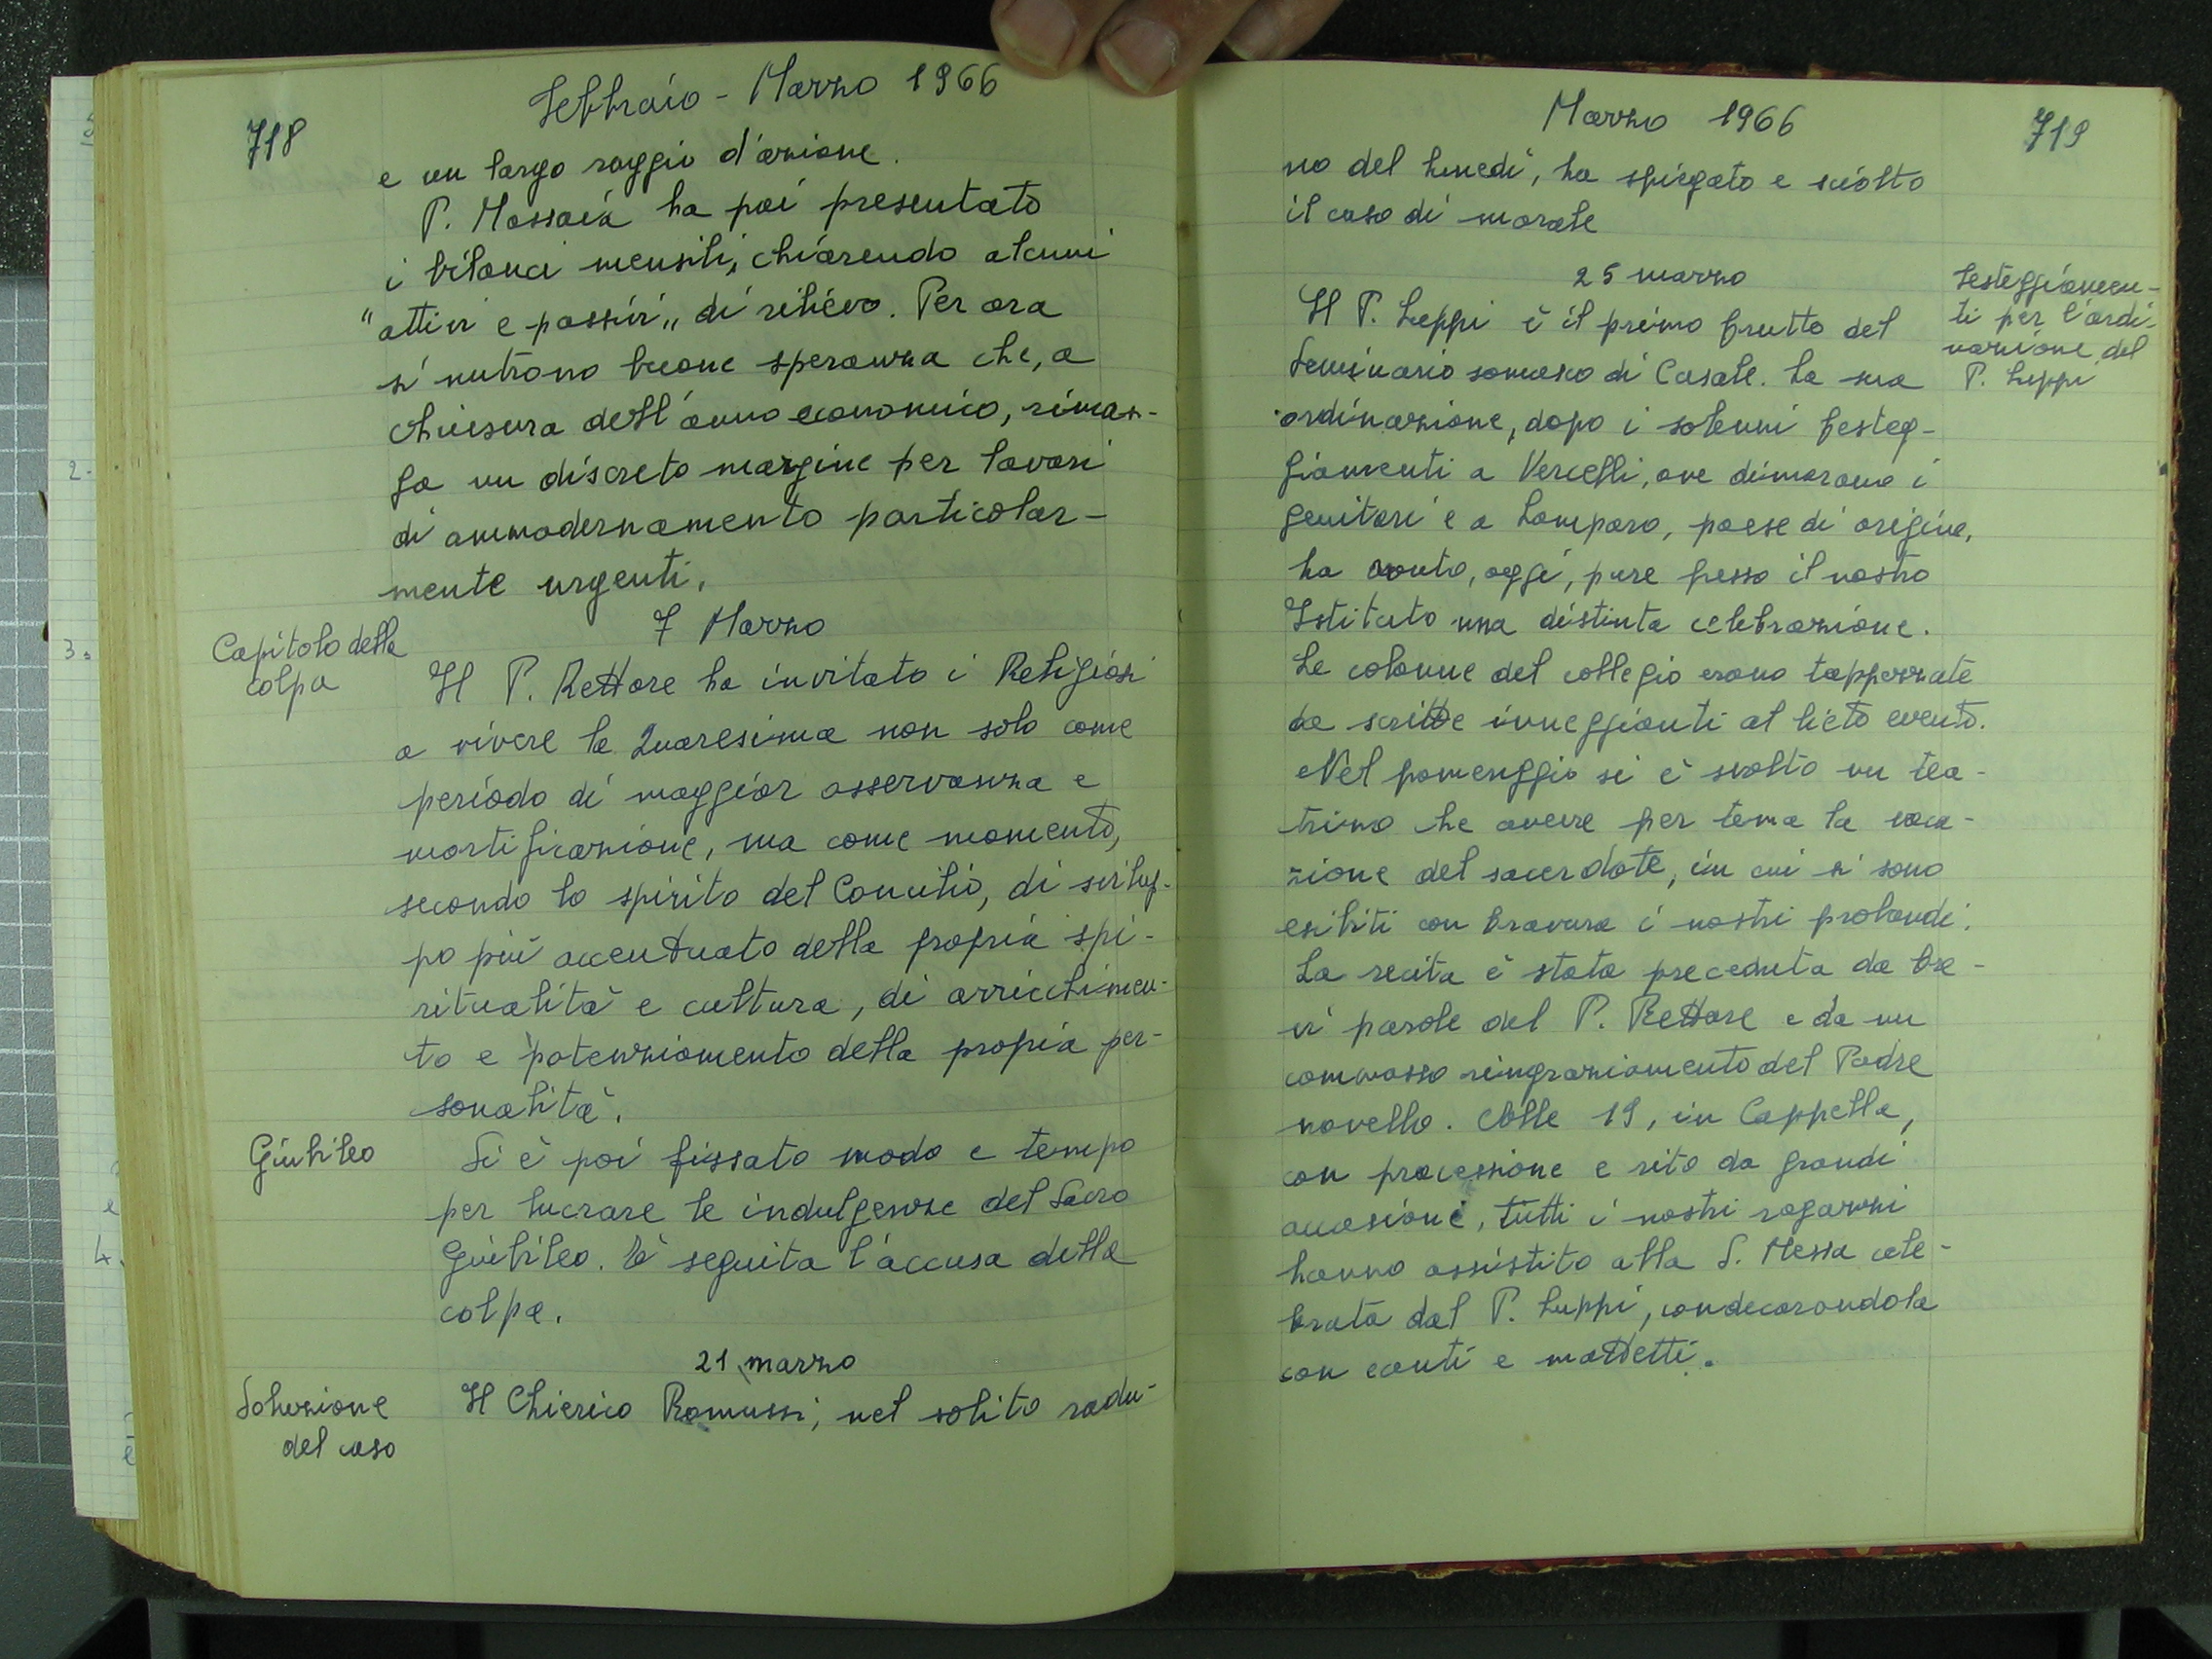 718
Febbraio - Marzo 1966
e un largo raggio d'azione.
P. Massaia ha poi presentato
i bilanci mensili, chiarendo alcuni
"attivi e passivi" di rilievo. Per ora
si nutrono buone speranza che, a
chiusura dell'anno economico, riman-
ga un discreto margine per lavori
di ammodernamento particolar-
mente urgenti.
7 Marzo
Capitolo della
colpa
Il P. Rettore ha invitato i Religiosi
a vivere la Quaresima non solo come
periodo di maggior osservanza e
mortificazione, ma come momento,
secondo lo spirito del Concilio, di svilup-
po più accentuato della propria spi-
ritualità e cultura, di arricchimen-
to e potenziamento della propria per-
sonalità.
Giubileo
Si è poi fissato modo e tempo
per lucrare le indulgenze del Sacro
Giubileo. È seguita l'accusa della
colpa.
21 marzo
Soluzione
del caso
Il Chierico Ramussi, nel solito radu-
Marzo 1966
719
no del lunedì, ha spiegato e sciolto
il caso di morale
25 marzo
Festeggiamen-
ti per l'ordi-
nazione del
P. Luppi
Il P. Luppi è il primo frutto del
Seminario somasco di Casale. La sua
ordinazione, dopo i solenni festeg-
giamenti a Vercelli, ove dimorano i
genitori e a Lamporo, paese di origine,
ha avuto, oggi, pure presso il nostro
Istituto una distinta celebrazione.
Le colonne del collegio erano tappezzate
da scritte inneggianti al lieto evento.
Nel pomeriggio si è svolto un tea-
trino che aveve per tema la voca-
zione del sacerdote, in cui si sono
esibiti con bravura i nostri probandi.
La recita è stata preceduta da bre-
vi parole del P. Rettore e da un
commosso ringraziamento del Padre
novello. Alle 19, in Cappella,
con processione e rito da grandi
occasioni, tutti i nostri ragazzi
hanno assistito alla S. Messa cele-
brata dal P. Luppi, condecorandola
con canti e mottetti.
2.
3.
4.